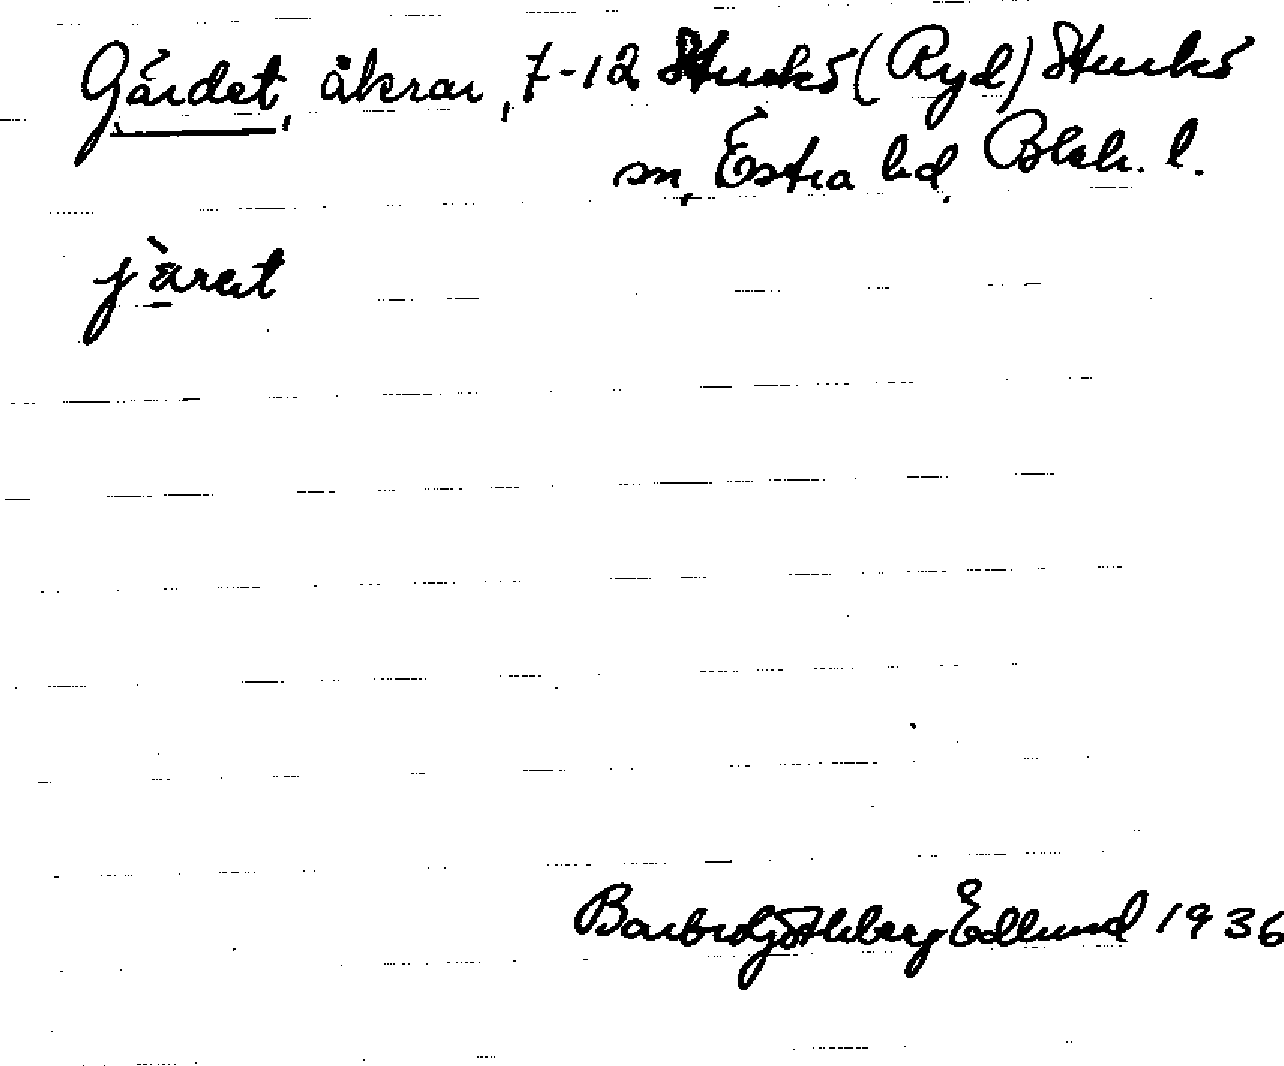 Gärdet, åkrar, 7-12 Sturkö (Ryd) Sturkö
sn, Östra hd, Blek. l.
järet
Barbro Götheberg Edlund 1936